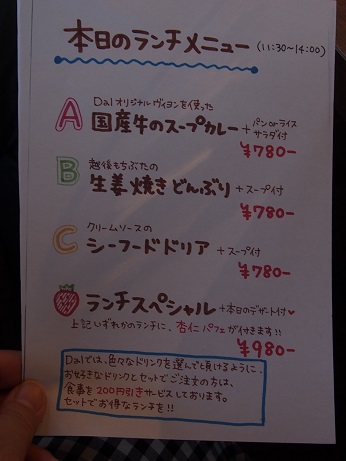 本日のランチメニュー (11:30~14:00)
Dalオリジナルヴィヨンを使った
A 国産牛のスープカレー + パンorライス サラダ付
¥780-
越後もちぶたの
B 生姜焼きどんぶり + スープ付
¥780-
クリームソースの
C シーフードドリア + スープ付
¥780-
ランチスペシャル + 本日のデザート付♥
上記いずれかのランチに、杏仁パフェが付きます!!
¥980-
Dalでは、色々なドリンクを選んで頂けるように、
お好きなドリンクとセットでご注文の方は、
食事を200円引きサービスしております。
セットでお得なランチを!!